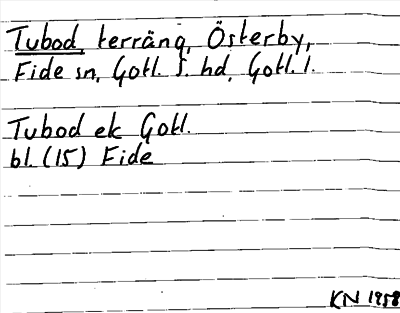 Tubod, terräng, Österby,
Eide sn, Gotl. s. hd, Gotl. l.
Tubod ek Gotl.
bl. (15) Eide
KN 1958